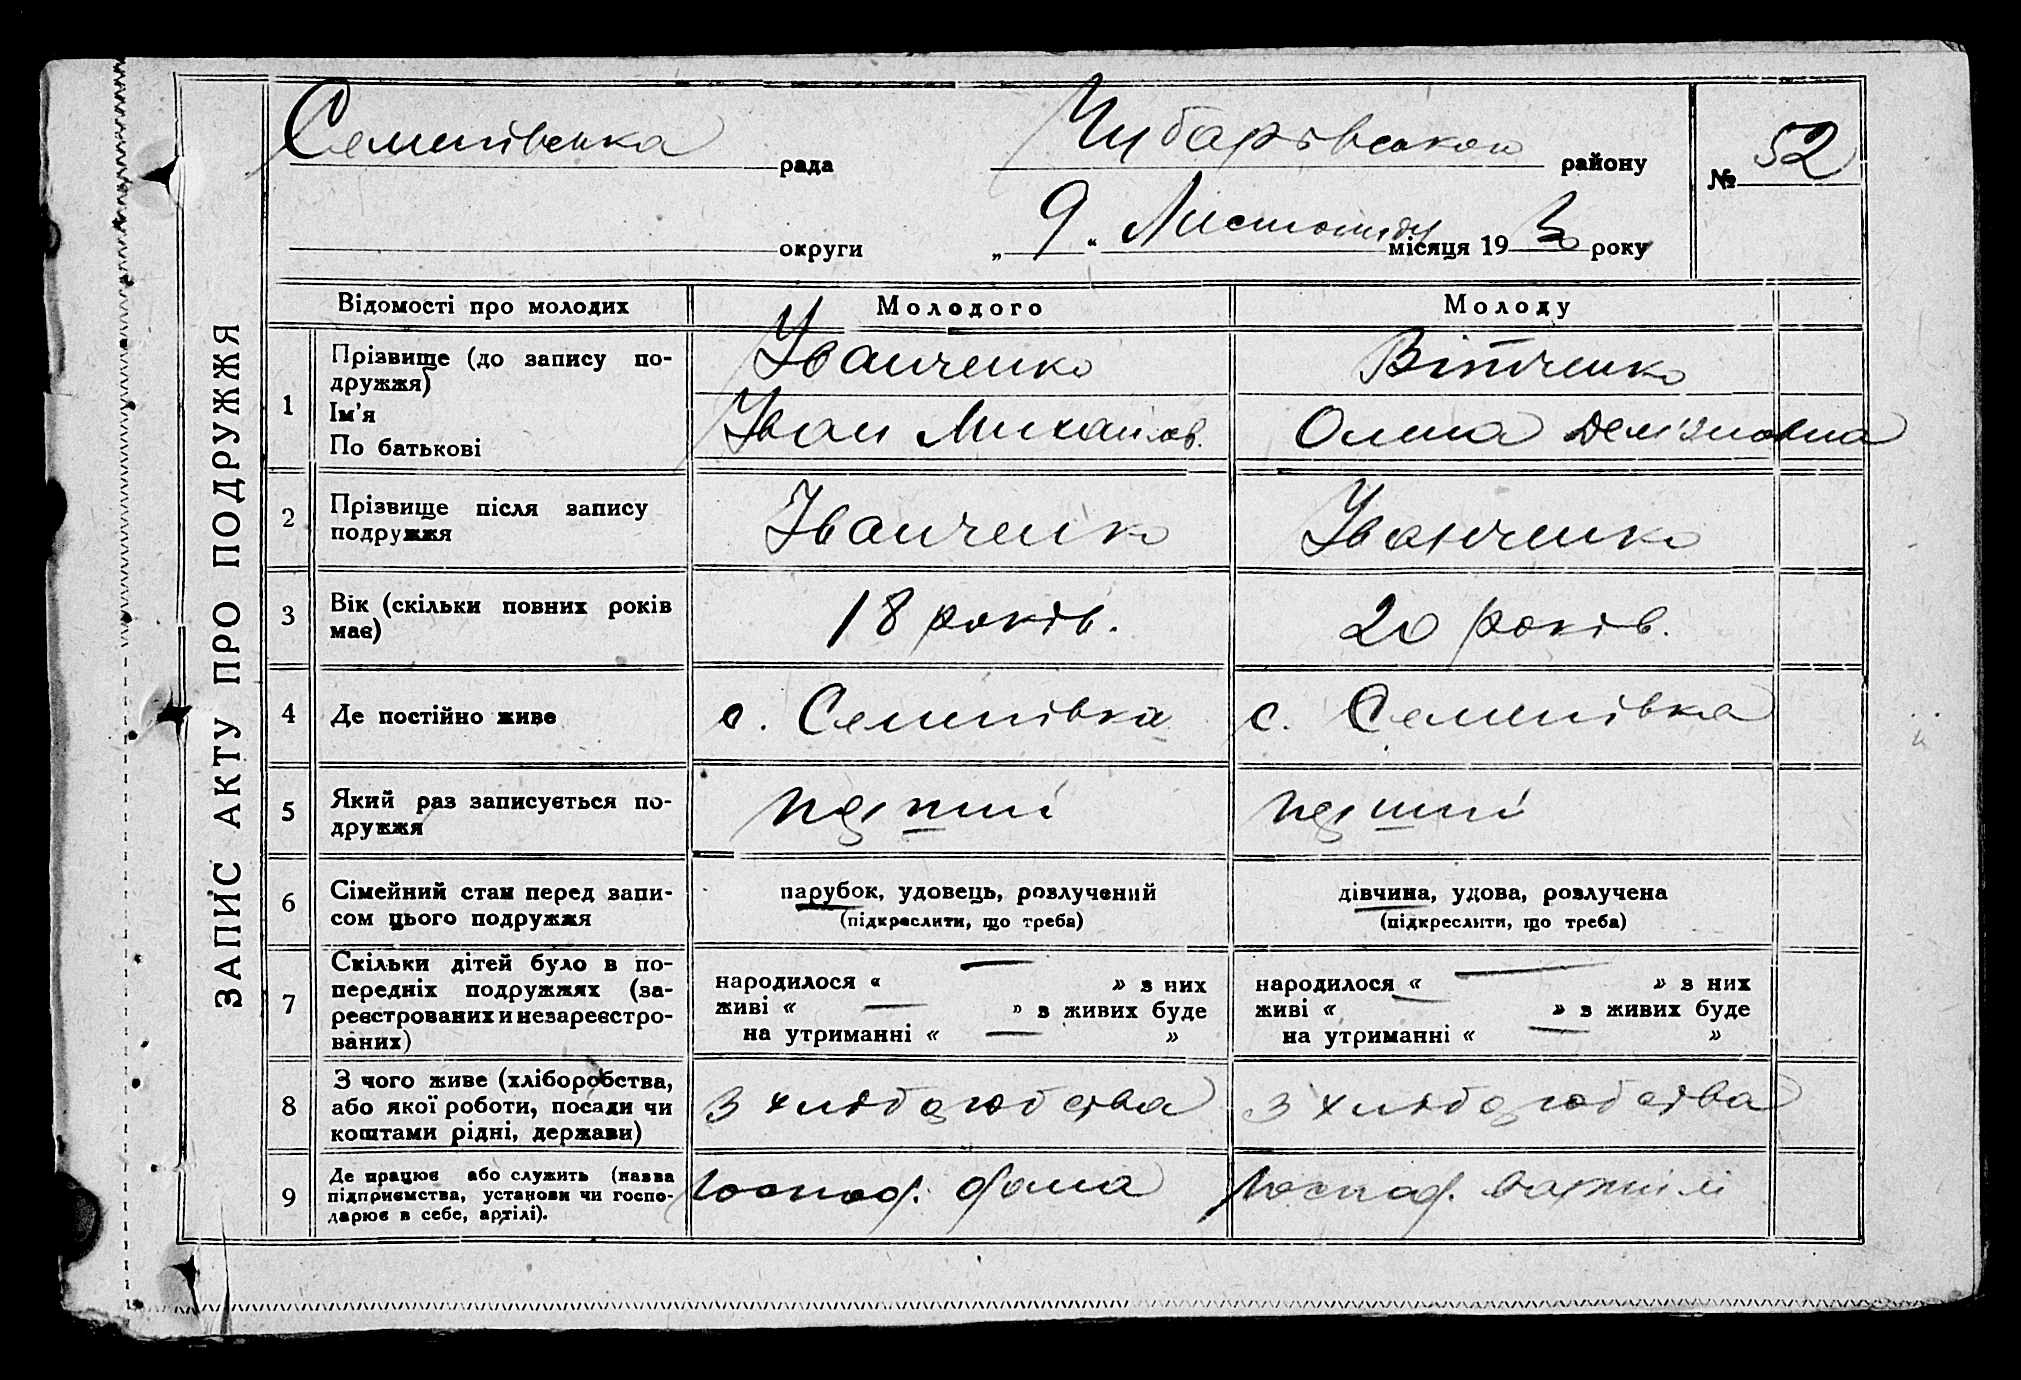 ЗАПИС АКТУ ПРО ПОДРУЖЖЯ
Семенівська рада
Чубарівського району
№ 52
округи
„ 9 “ Листопаду місяця 19 30 року
Відомості про молодих
Молодого
Молоду
1
Прізвище (до запису по-
дружжя)
Ім'я
По батькові
Іванченко
Іван Михайлов.
Вітченко
Олена Дем'яновна
2
Прізвище після запису
подружжя
Іванченко
Іванченко
3
Вік (скільки повних років
має)
18 років.
20 років.
4
Де постійно живе
с. Семенівка
с. Семенівка
5
Який раз записується по-
дружжя
перший
перший
6
Сімейний стан перед запи-
сом цього подружжя
парубок, удовець, розлучений
(підкреслити, що треба)
дівчина, удова, розлучена
(підкреслити, що треба)
7
Скільки дітей було в по-
передніх подружжях (за-
реєстрованих и незареєстро-
ваних)
народилося « — » з них
живі « — » з живих буде
на утриманні « — »
народилося « — » з них
живі « — » з живих буде
на утриманні « — »
8
З чого живе (хліборобства,
або якої роботи, посади чи
коштами рідні, держави)
З хліборобства
З хліборобства
9
Де працює або служить (назва
підприємства, установи чи госпо-
дарює в себе, артілі).
Господ.
Господ.